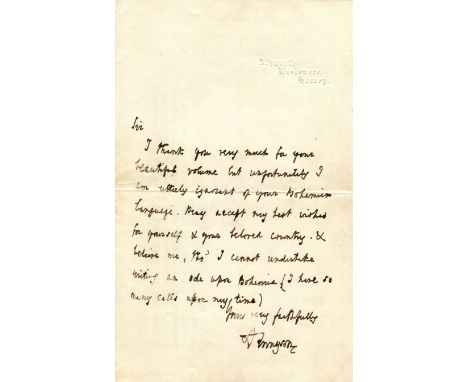 Aldworth,
Haslemere,
Surrey.
Sir
I thank you very much for your
beautiful volume but unfortunately I
am utterly ignorant of your Bohemian
language. Pray accept my best wishes
for yourself & your beloved country. &
believe me, tho' I cannot undertake
writing an ode upon Bohemia (I have so
many calls upon my time)
Yours very faithfully
A Tennyson